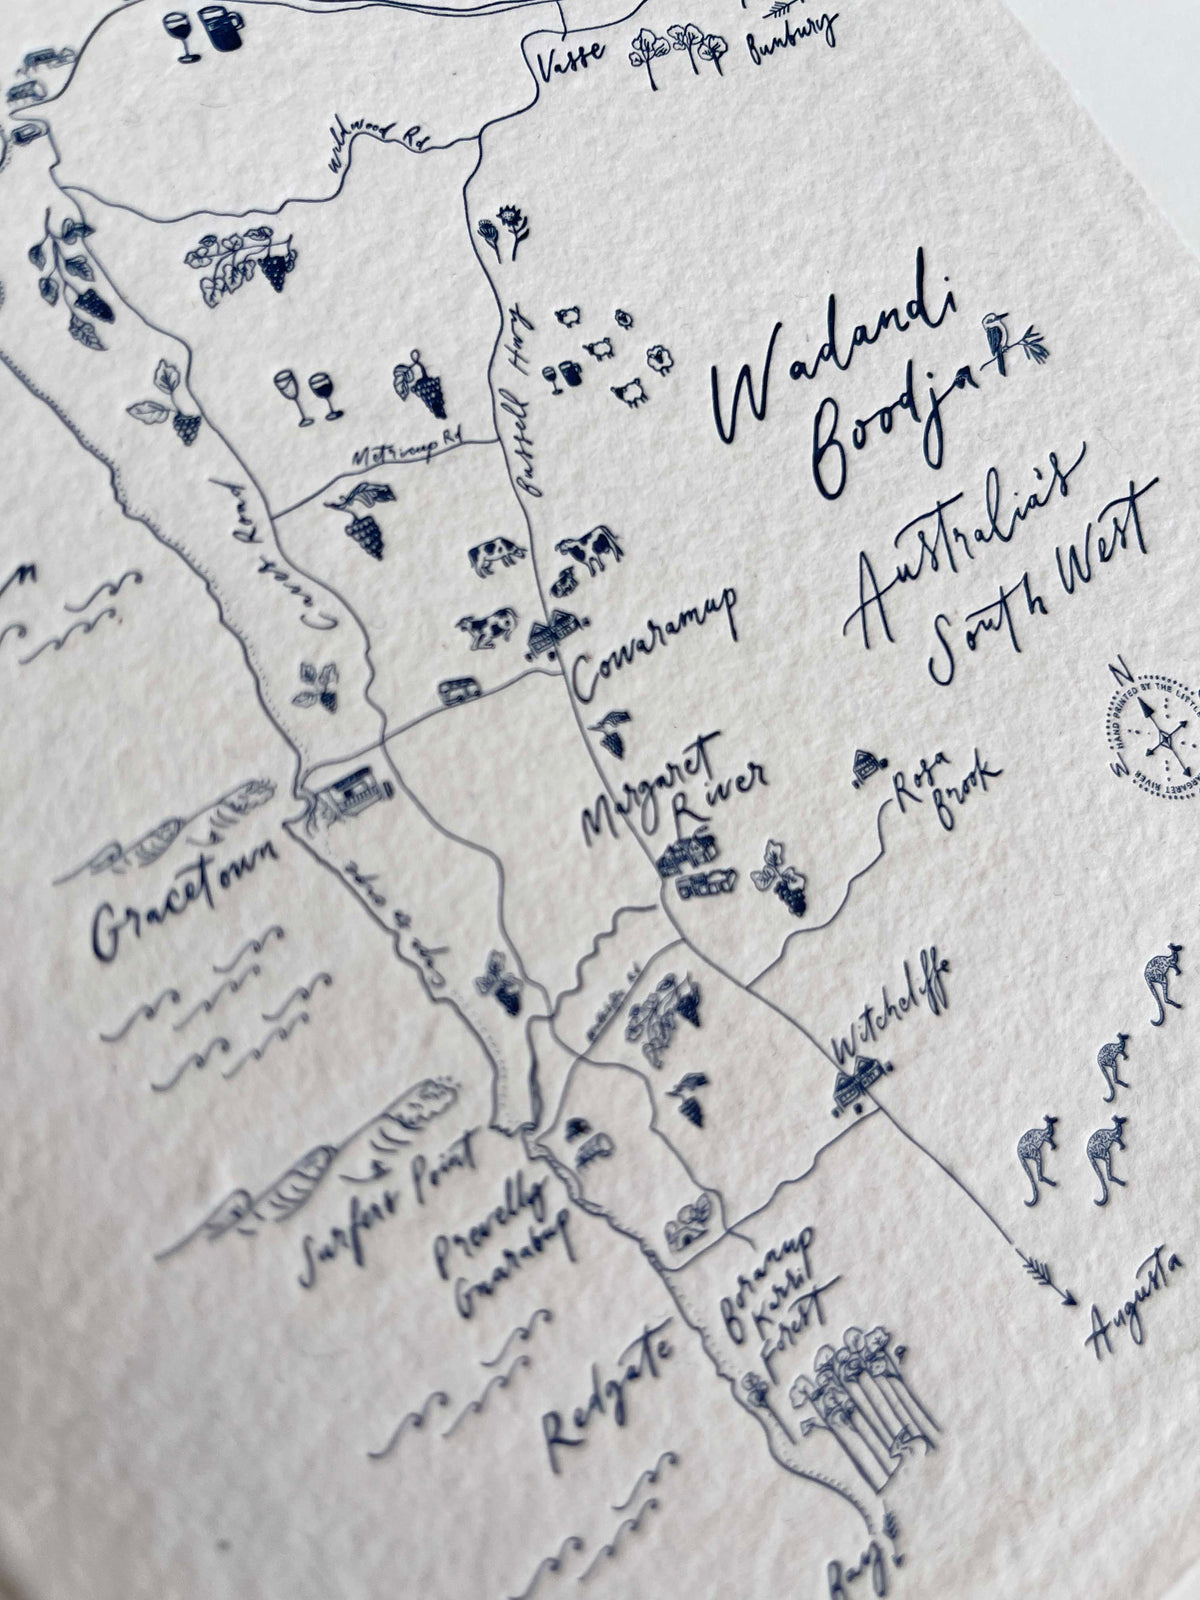 Vasse
Bunbury
Wildwood Rd
Bussell Hwy
Metricup Rd
Caves Road
Wadandi
Boodja
Australia's
South West
Cowaramup
N
HAND PRINTED BY THE LITTLE
MARGARET RIVER
Margaret
River
Rosa
Brook
Gracetown
Cape to Cape
Witchcliffe
Surfers Point
Prevelly
Gnarabup
Boranup
Karri
Forest
Redgate
Augusta
Bay